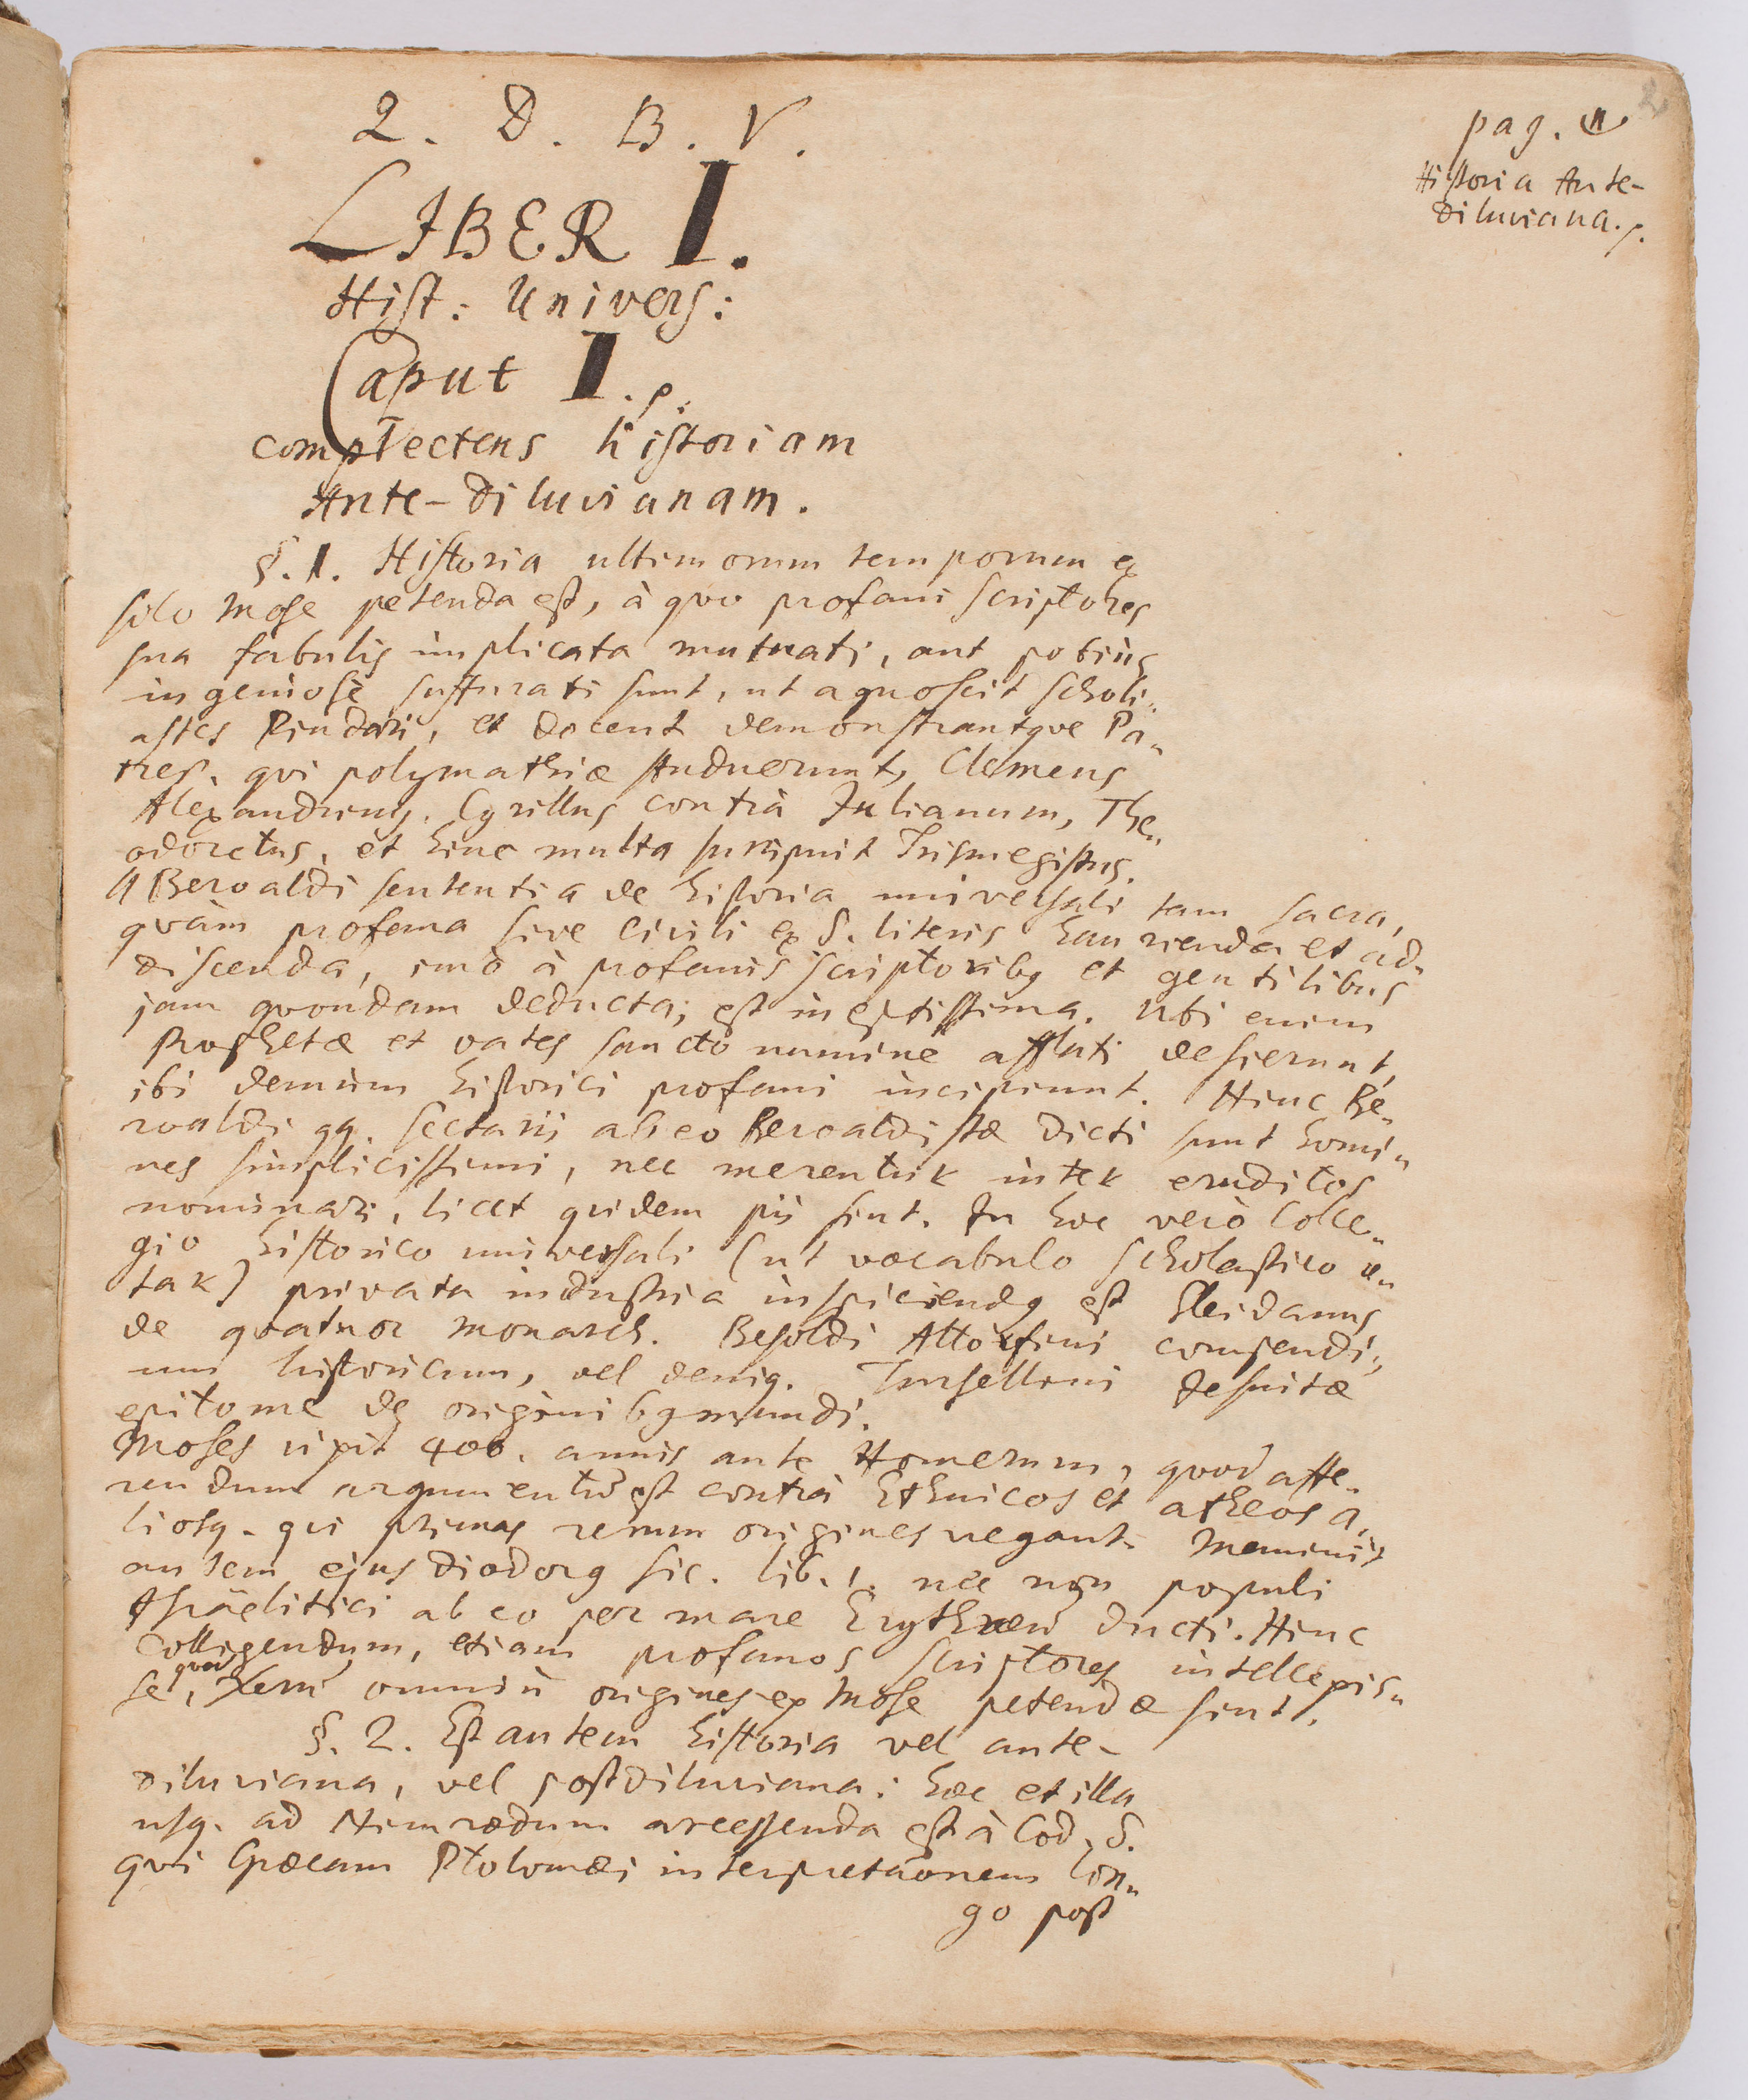 Q. D. B. V.
LIBER I.
Hist: Univers:
Caput I.
complectens historiam
Ante-diluvianam.
pag. 1
Historia Ante-
diluviana.
2
§. 1. Historia ultimorum temporum ex
solo Mose petenda est, à quo profani scriptores
sua fabulis implicata mutuati, aut potiùs
ingeniosè suffurati sunt, ut agnoscit scholi-
astes Pindari, et docent demonstrantque Pa-
tres. qvi polymathiæ studuerunt, Clemens
Alexandrinus. Cyrillus contrà Julianum, The-
odoretus, et hinc multa surripuit Trismegistus.
Beroaldi sententia de historia universali tam sacra,
qvàm profana sive civili ex S. literis haurienda et ad-
discenda, imò à profanis scriptoribq et gentilibus
jam qvondam deducta; est ineptissima. Ubi enim
Prophetæ et vates sancto numine afflati desierunt,
ibi demùm historici profani incipiunt. Hinc Be-
roaldi qq. sectarii ab eo Beroaldistæ dicti sunt homi-
nes simplicissimi, nec merentur inter eruditos
nominari, licet qvidem pii sint. In hoc verò Colle-
gio historico universali (ut vocabulo scholastico u-
tar) privata industria inspiciendq est Sleidanus
de qvatuor Monarch. Besoldi Altorfini compendi-
um historicum, vel deniq. Turselleni Jesuitæ
epitome de originibq mundi.
Moses vixit 400. annis ante Homerum, qvod asse-
rendum argumentū est contrà Ethnicos et atheos a-
liosq. qvi primas rerum origines negant. Meminit
autem ejus Diodorq Sic. lib. 1. nec non populi
Israëlitici ab eo per mare Erythræū ducti. Hinc
colligendum, etiam profanos scriptores intellexis-
se, qvod rerū omniū origines ex Mose petendæ sint.
§. 2. Est autem historia vel ante-
diluviana, vel postdiluviana: hæc et illa
usq. ad Nimrodum arcessenda est à Cod. S.
qvi Græcam Ptolomæi interpretationem lon-
go post